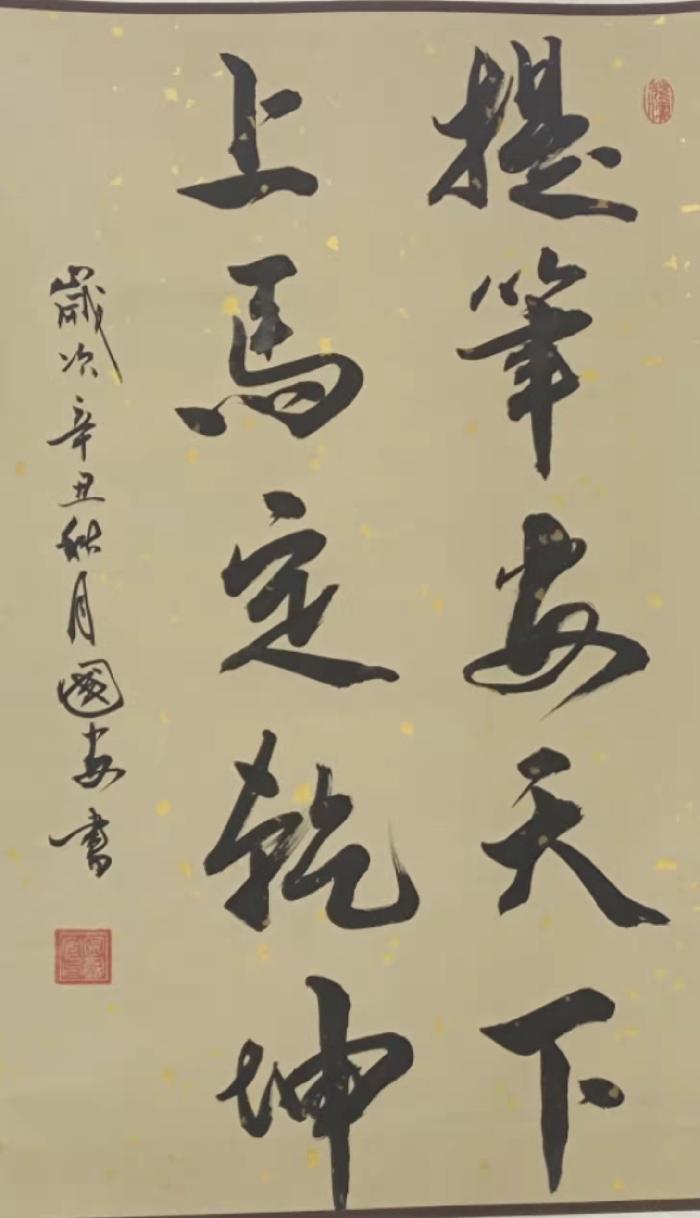 提筆安天下
上馬定乾坤
歲次辛丑秋月國安書